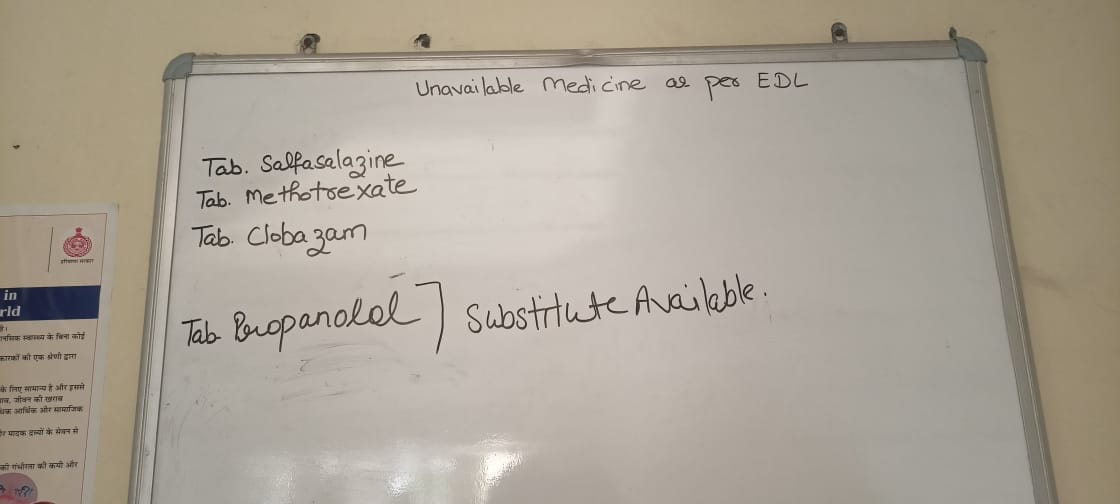 Unavailable Medicine as per EDL
Tab. Salfasalazine
Tab. Methotrexate
Tab. Clobazam
Tab Propanolol ] Substitute Available.
हरियाणा सरकार
in
rld
है।
मानसिक स्वास्थ्य के बिना कोई
कारकों की एक श्रेणी द्वारा
के लिए सामान्य है और इससे
जीवन की खराब
आर्थिक और सामाजिक
मादक द्रव्यों के सेवन से
की गंभीरता की कमी और